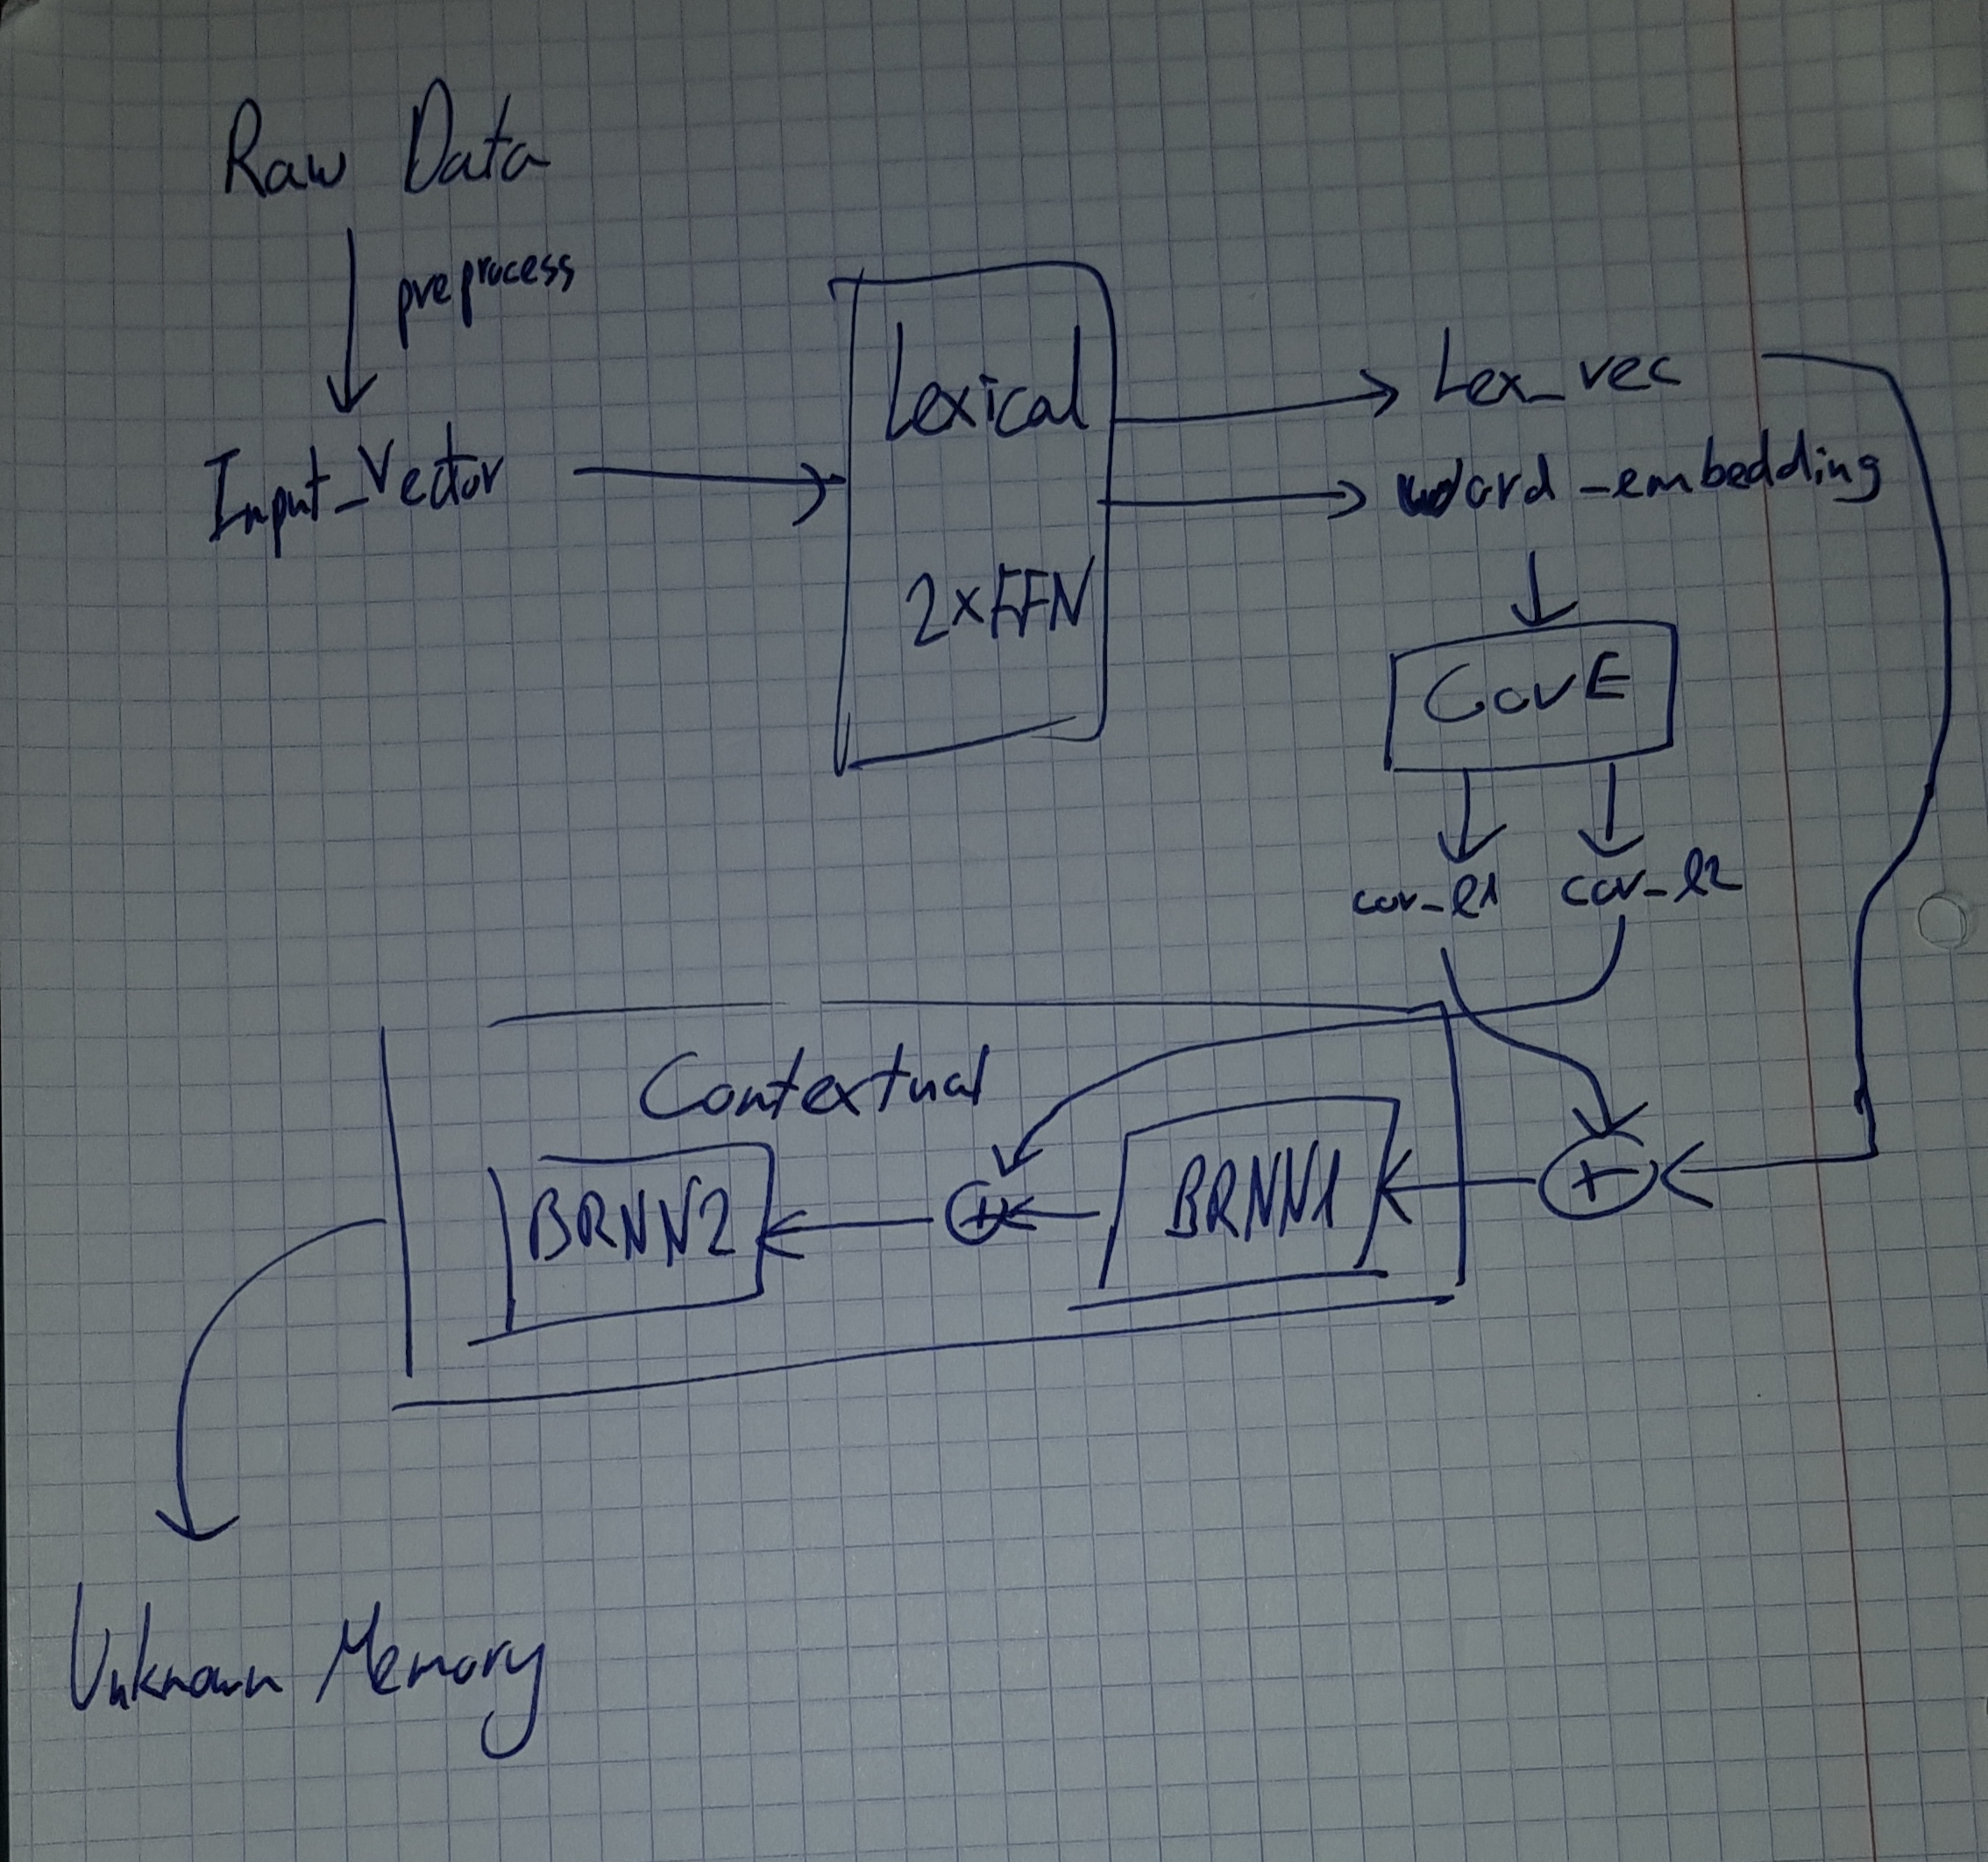 Raw Data
preprocess
Input_Vector
Lexical
2xFFN
Lex_vec
word_embedding
CovE
cov_l1
cov_l2
Contextual
BRNN2
+
BRNN1
+
Unknown Memory